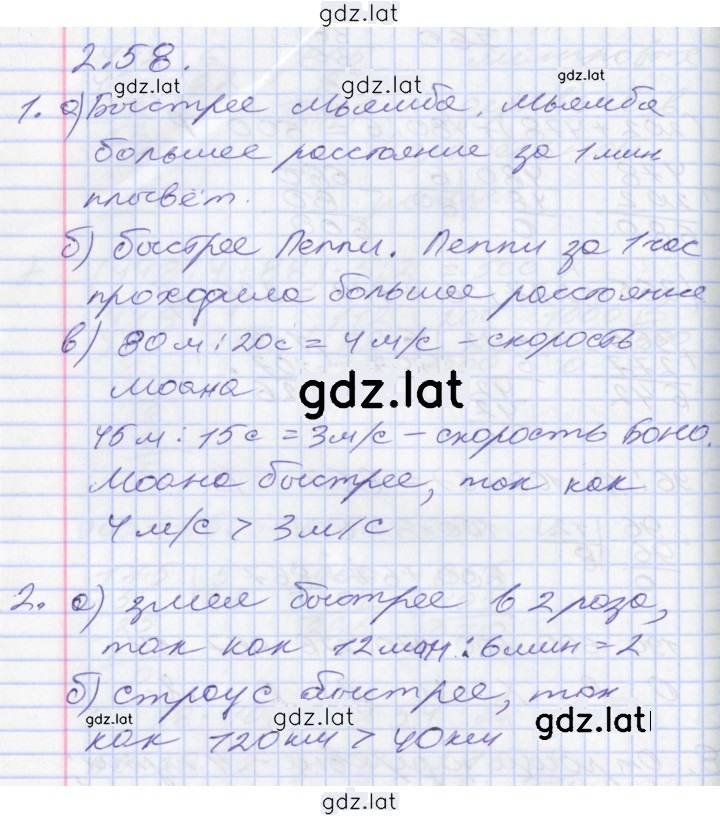 gdz.lat
2.58.
gdz.lat gdz.lat gdz.lat
1. а) Быстрее Мьямба. Мьямба
большее расстояние за 1 мин
плывёт.
б) быстрее Пеппи. Пеппи за 1 час
проходила большее расстояние
в) 80 м : 20 с = 4 м/с – скорость
Моана
gdz.lat
45 м : 15 с = 3 м/с – скорость Боно.
Моана быстрее, так как
4 м/с > 3 м/с
2. а) змея быстрее в 2 раза,
так как 12 мин : 6 мин = 2
б) страус быстрее, так
gdz.lat gdz.lat gdz.lat
как 120 км > 40 км
gdz.lat